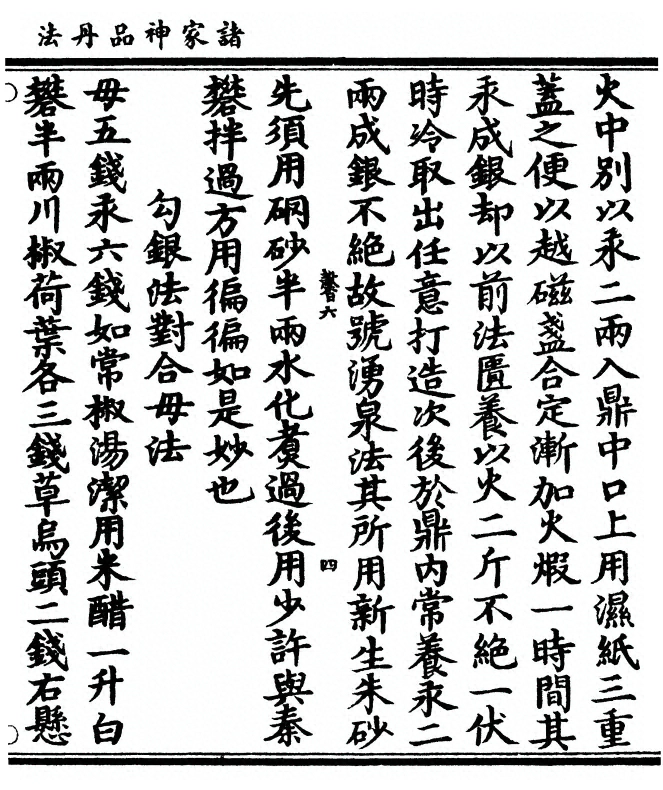 諸家神品丹法
火中別以汞二兩入鼎中口上用濕紙三重
蓋之便以越磁盞合定漸加火煆一時間其
汞成銀却以前法匱養以火二斤不絶一伏
時冷取出任意打造次後於鼎內常養汞二
兩成銀不絶故號湧泉法其所用新生朱砂
磬六
四
先須用硇砂半兩水化煑過後用少許與秦
礬拌過方用徧徧如是妙也
勾銀法對合母法
母五錢汞六錢如常椒湯潔用米醋一升白
礬半兩川椒荷葉各三錢草烏頭二錢右懸